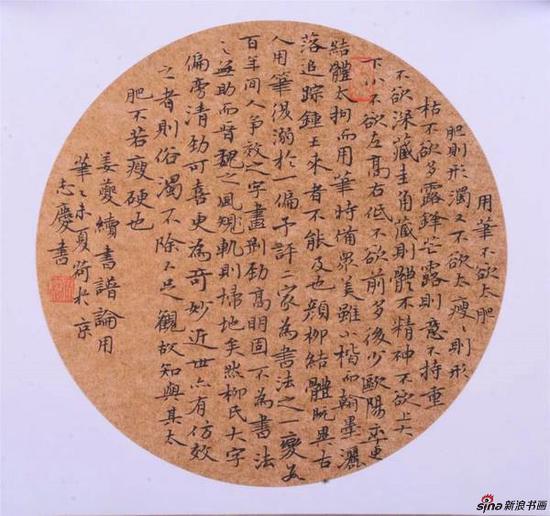 用筆不欲太肥
肥則形濁又不欲太瘦〻則形
枯不欲多露鋒芒露則意不持重
不欲深藏圭角藏則體不精神不欲上大
下小不欲左高右低不欲前多後少歐陽率更
結體太拘而用筆特備眾美雖小楷而翰墨灑
落追踪鍾王來者不能及也顏柳結體既異古
人用筆復溺於一偏予評二家為書法之一變數
百年間人爭效之字畫剛勁高明固不為書法
之無助而晉魏之風規軌則掃地矣然柳氏大字
偏旁清勁可喜更為奇妙近世亦有仿效
之者則俗濁不除不足觀故知與其太
肥不若瘦硬也
姜夔續書譜論用
筆乙未夏荷於京
志慶書
sina新浪书画